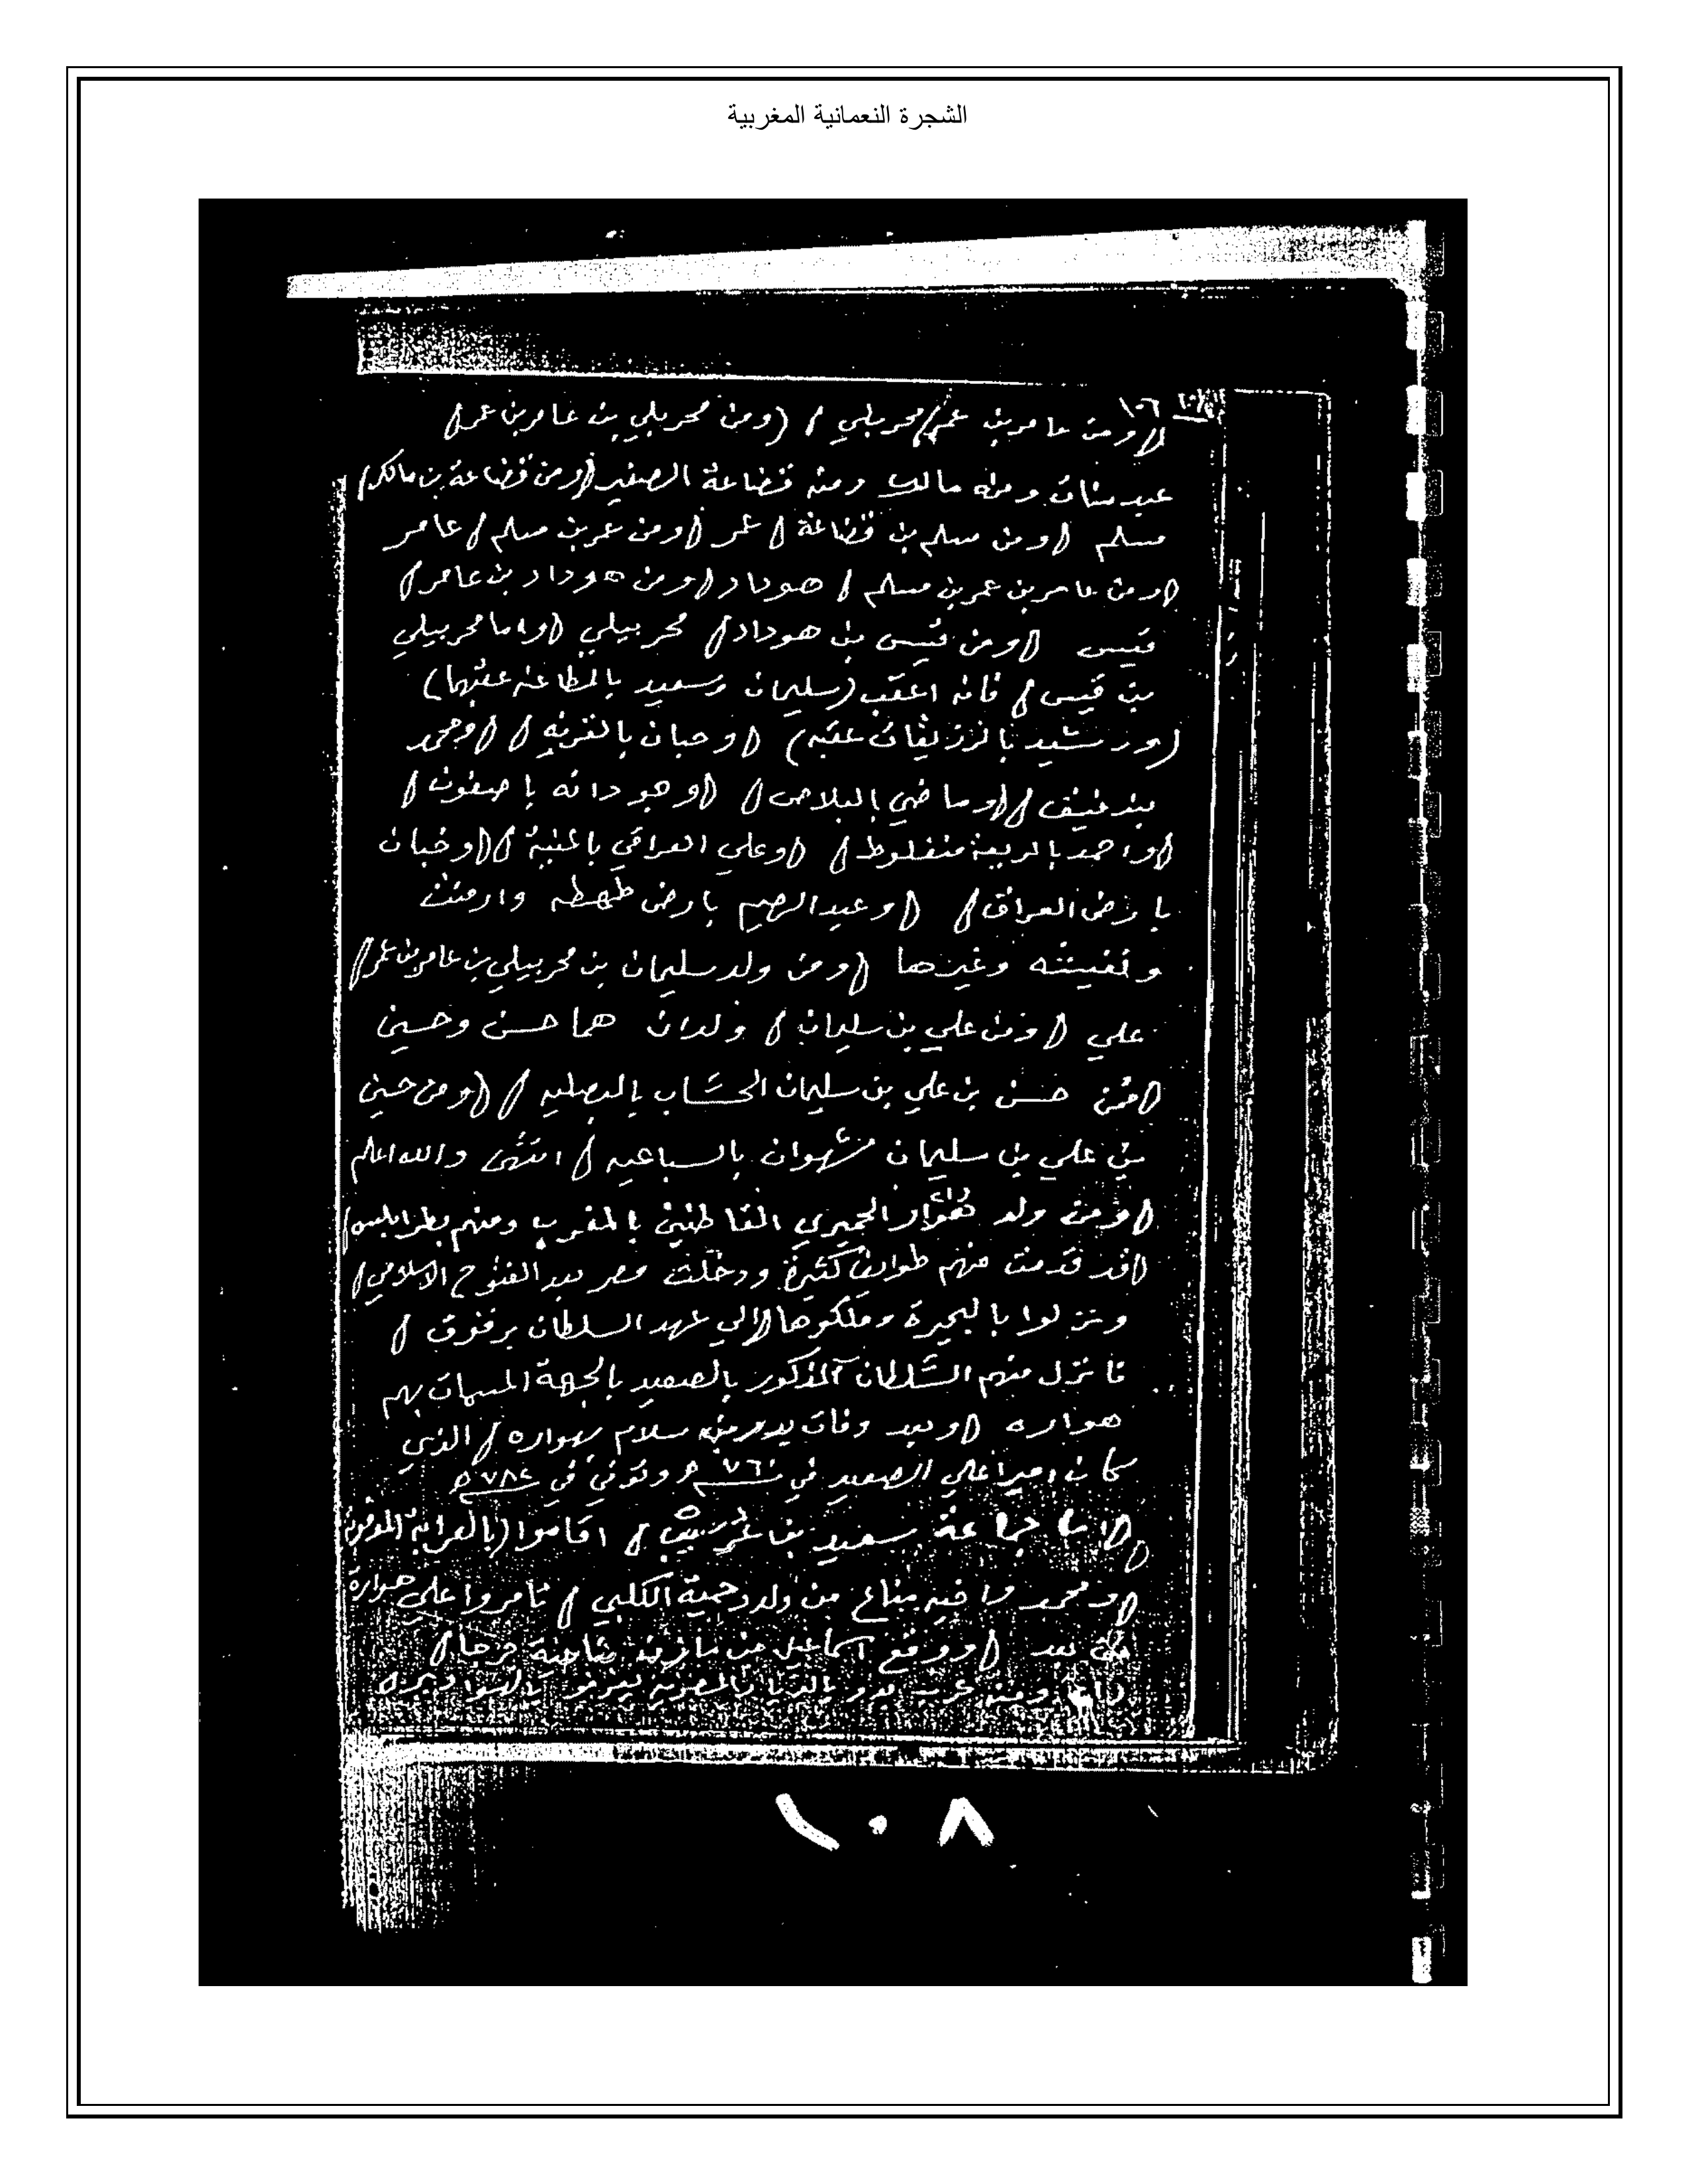 الشجرة النعمانية المغربية
١٠٦
(ومن عامر بن عمر/ محربلي / (ومن محربلي بن عامر بن عمر/
عبد منات ومنه مالك ومنه قضاعة الصغير (ومن قضاعة بن مالك/
مسلم (ومن مسلم بن قضاعة / عمر (ومن عمر بن مسلم / عامر
(ومن عامر بن عمر بن مسلم / هوداد (ومن هوداد بن عامر/
قيس (ومن قيس بن هوداد/ محربيلي (واما محربيلي
بن قيس / فانه اعقب (سليمان وسعيد بالمطاعنه عقبهما)
(ورشيد بالرزيقات عقبه) (وحبان بالقرنه / (ومحمد
(وماضي بالبلاص / (وجودانه باصفون /
(واحمد بالربعة منفلوط / (وعلي العراقي / (وخبان
بارض العراق / (وعبد الرحيم بارض طهطه وارمنت
وغيرها (ومن ولد سليمان بن محربيلي بن عامر بن عمر/
علي (ومن علي بن سليمان / ولدان هما حسن وحسين
(فمن حسن بن علي بن سليمان الحشاب بالبصليه / (ومن حسين
بن علي بن سليمان شهوان بالسباعيه / انتهى والله اعلم
(ومن ولد هوار الحميري القاطنين بالمغرب ومنهم بطرابلس /
(قد قدمت منهم طوايف كثيرة ودخلت مصر بعد الفتوح الاسلامي /
ونزلوا بالبحيرة وملكوها (الي عهد السلطان برقوق /
فانزل منهم السلطان المذكور بالصعيد بالجهة المسمات بهم
هواره (وبعد وفات سلام بهواره / الذي
كان اميرا علي الصعيد في ٧٦٠ وتوفي في ٧٨٢
(اما جماعة سعيد / اقاموا (بالعرابة المدفونة
(ومحمد من ولد دحية الكلبي / تامروا علي هوارة
بعد (ووقع اسماعيل بن مازن جرجا /